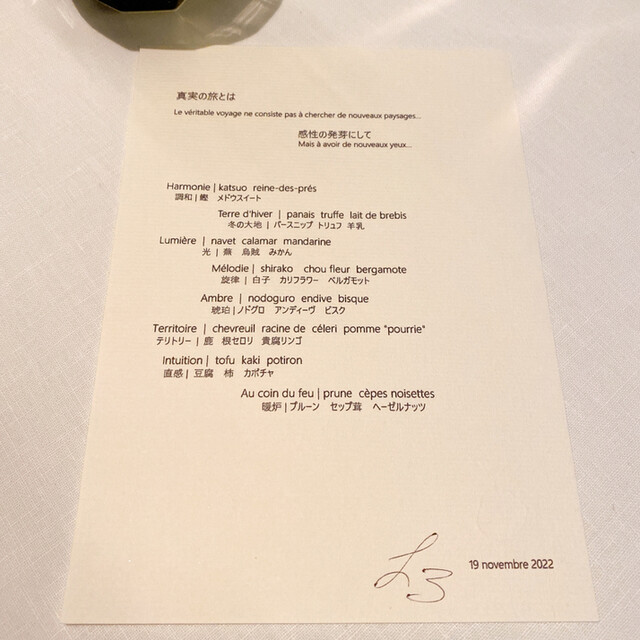 真実の旅とは
Le véritable voyage ne consiste pas à chercher de nouveaux paysages...
感性の発芽にして
Mais à avoir de nouveaux yeux...
Harmonie | katsuo reine-des-prés
調和 | 鰹 メドウスイート
Terre d'hiver | panais truffe lait de brebis
冬の大地 | パースニップ トリュフ 羊乳
Lumière | navet calamar mandarine
光 | 蕪 烏賊 みかん
Mélodie | shirako chou fleur bergamote
旋律 | 白子 カリフラワー ベルガモット
Ambre | nodoguro endive bisque
琥珀 | ノドグロ アンディーヴ ビスク
Territoire | chevreuil racine de céleri pomme "pourrie"
テリトリー | 鹿 根セロリ 貴腐リンゴ
Intuition | tofu kaki potiron
直感 | 豆腐 柿 カボチャ
Au coin du feu | prune cèpes noisettes
暖炉 | プルーン セップ茸 ヘーゼルナッツ
19 novembre 2022